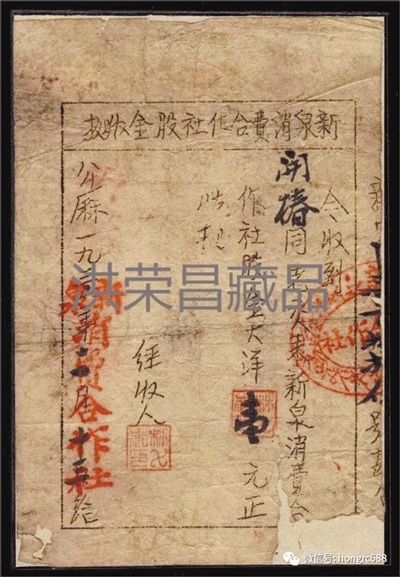 新泉消費合作社股金收據
今收到
開椿同志交來新泉消費合
作社股金大洋壹元正
此據
經收人
公曆一九三 年二月十 給
新泉消費合作社
洪荣昌藏品
微信号: hongrc688